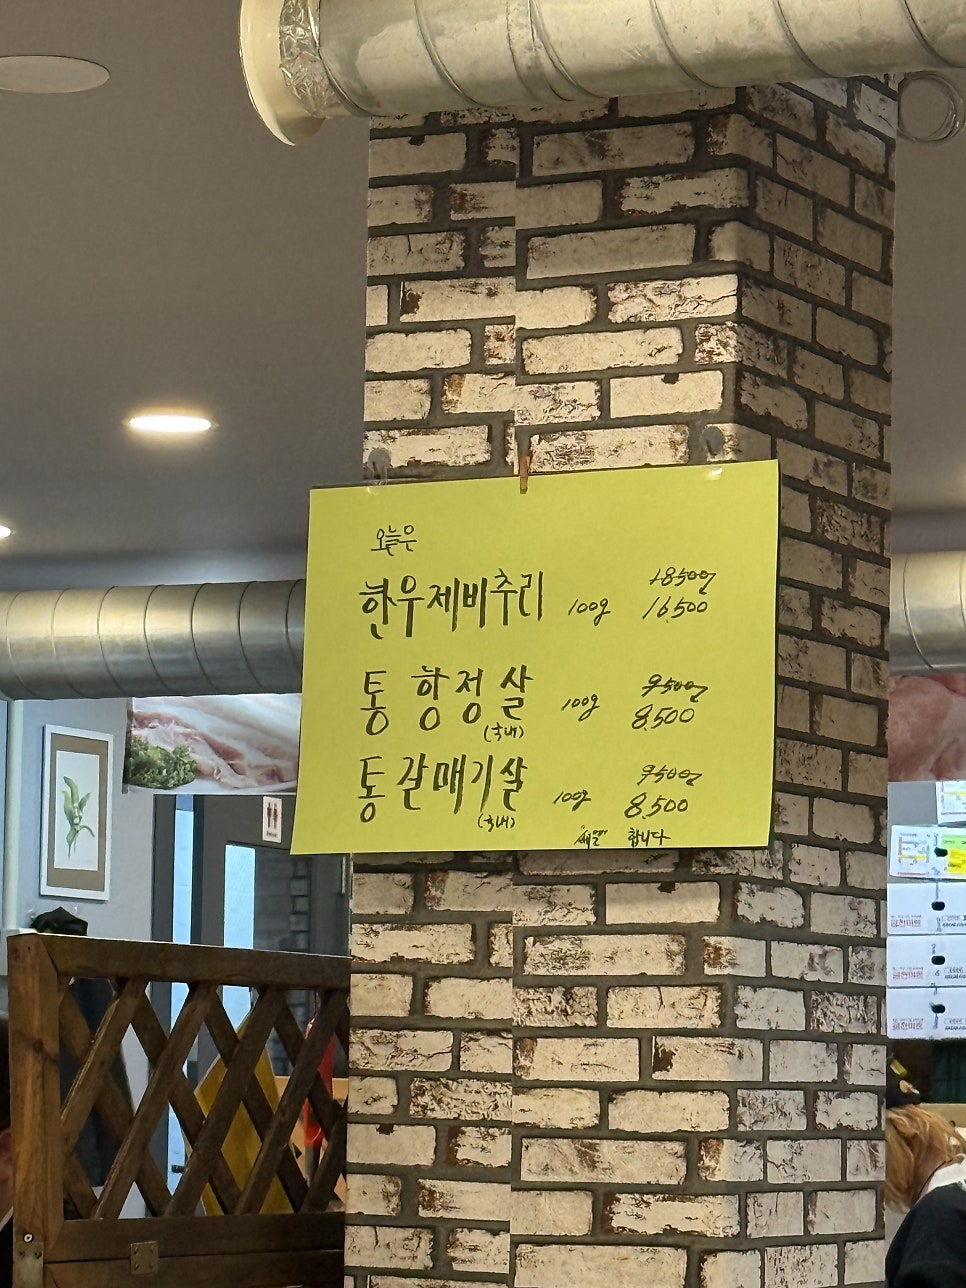 오늘은
한우제비추리 100g 18500원
16,500
통 항정살 100g 9500원
(국내) 8,500
통갈매기살 100g 9500원
(국내) 8,500
세일 합니다
금천미트
금천미트
금천미트